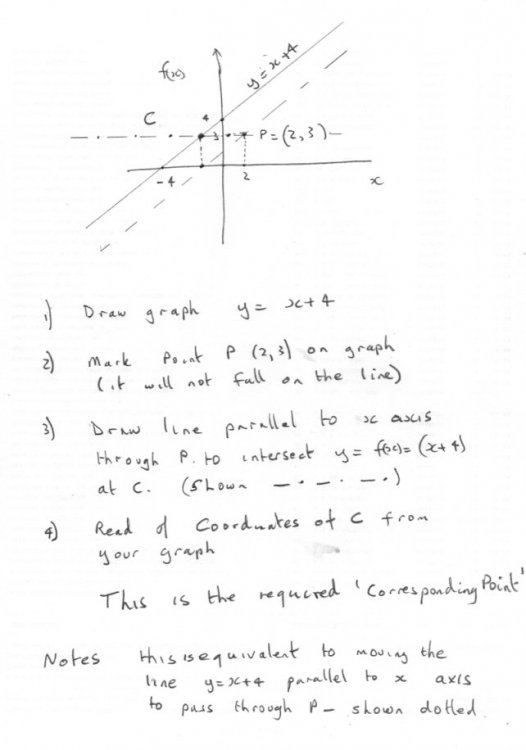 f(x)
y = x+4
C
4
3
P = (2,3)
-4
2
x
1) Draw graph y = x+4
2) Mark Point P (2,3) on graph
(it will not fall on the line)
3) Draw line parallel to x axis
through P. to intersect y = f(x) = (x+4)
at C. (Shown — · — · — · )
4) Read of Coordnates of C from
your graph
This is the required 'Corresponding Point'
Notes this is equivalent to moving the
line y=x+4 parallel to x axis
to pass through P – shown dotted.